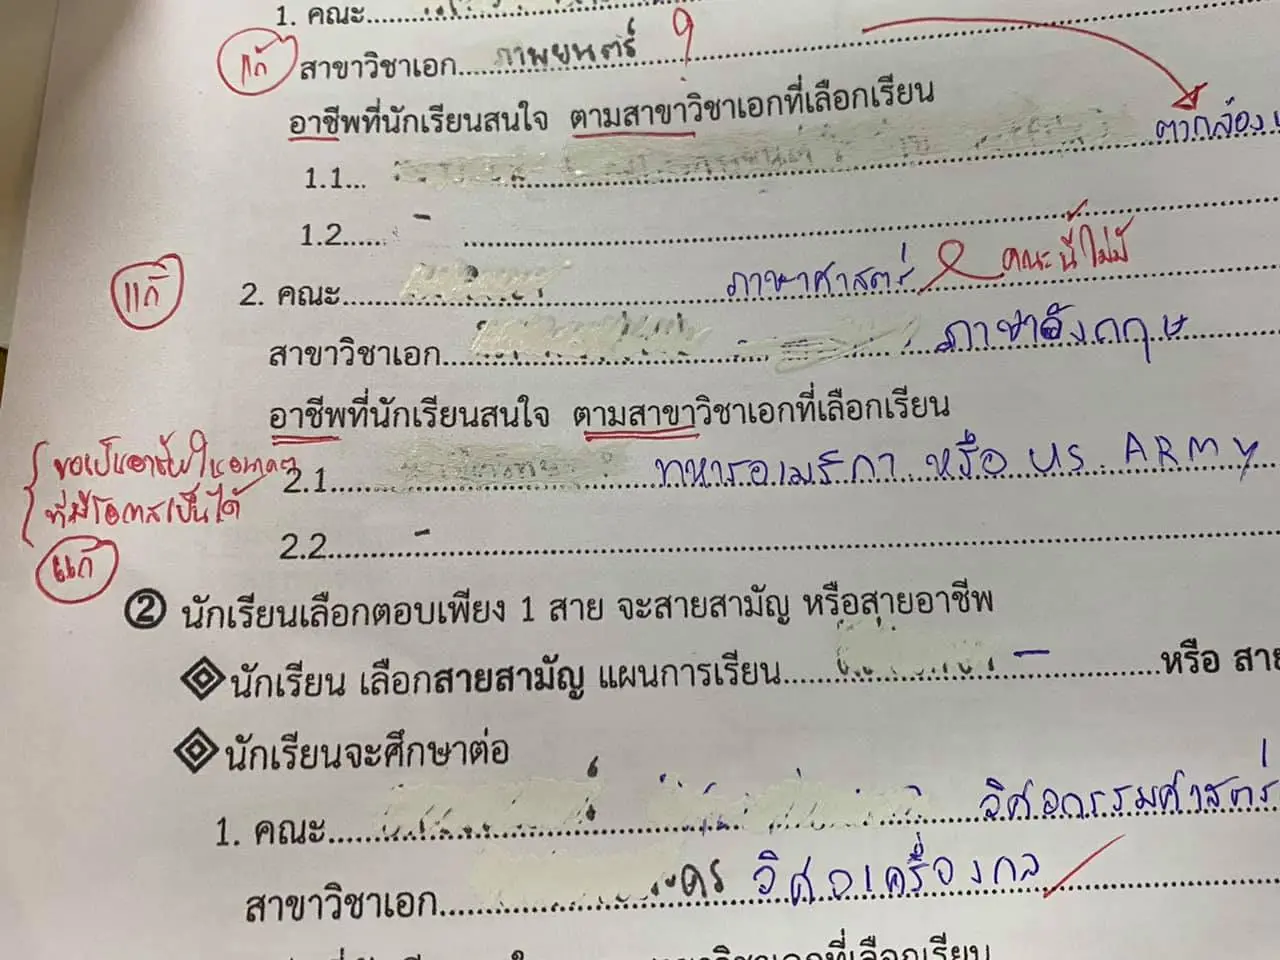 1. คณะ
แก้ สาขาวิชาเอก ภาพยนตร์ ?
อาชีพที่นักเรียนสนใจ ตามสาขาวิชาเอกที่เลือกเรียน
1.1 ตากล้อง
1.2 -
แก้ 2. คณะ ภาษาศาสตร์ คณะนี้ไม่มี
สาขาวิชาเอก ภาษาอังกฤษ
อาชีพที่นักเรียนสนใจ ตามสาขาวิชาเอกที่เลือกเรียน
ขอเป็นอาชีพในอนาคต
ที่มีโอกาสเป็นได้
2.1 ทหารอเมริกา หรือ US ARMY
2.2 -
แก้
② นักเรียนเลือกตอบเพียง 1 สาย จะสายสามัญ หรือสายอาชีพ
นักเรียน เลือกสายสามัญ แผนการเรียน - หรือ สาย
นักเรียนจะศึกษาต่อ
1. คณะ วิศวกรรมศาสตร์
สาขาวิชาเอก วิศวเครื่องกล
วิชาเอกที่เลือกเรียน